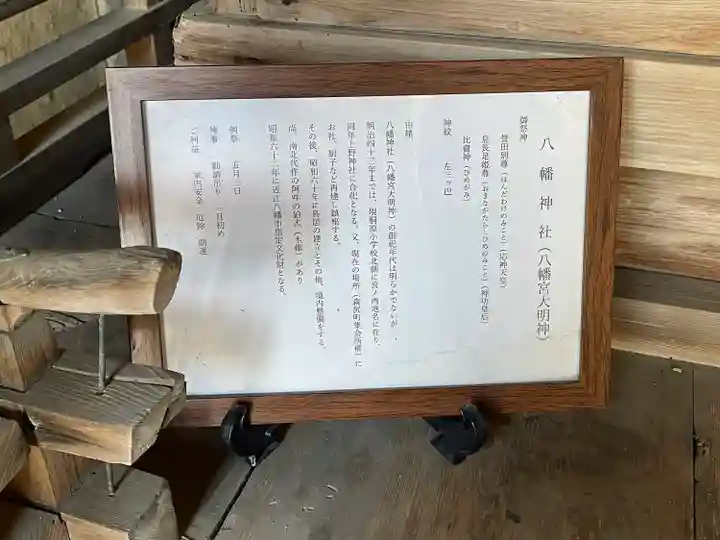 八幡神社（八幡宮大明神）
御祭神
誉田別尊（ほんだわけのみこと）（応神天皇）
息長足姫尊（おきながたらしひめのみこと）（神功皇后）
比賣神（ひめがみ）
神紋　左三ツ巴
由緒
八幡神社（八幡宮大明神）の創祀年代は明らかでないが、
明治四十二年までは、現桐原小学校北側に宮ノ西地名に在り、
同年上野神社に合祀となる。又、現在の場所（森尻町集会所横）に
お社、厨子など再建し鎮座する。
その後、昭和六十年に鳥居の建立とその他、境内整備をする。
尚、南北朝作の阿吽の狛犬（木雕）があり
昭和六十二年に近江八幡市指定文化財となる。
例祭　五月三日
神事　勧請吊り　一月初め
ご利益　家内安全　厄除　開運